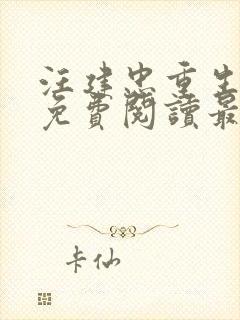 汪建忠重生
免費閱讀最
卡仙